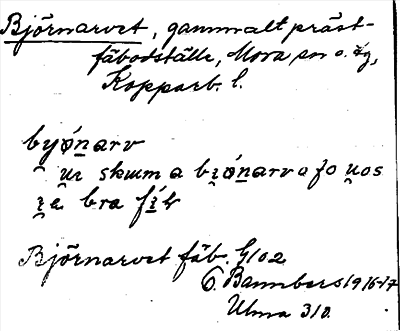 Björnarvet, gammalt präst-
fäbodställe, Mora sn o. tg,
Kopparb. l.
byǿn̲arv
u̯ɪ skum a bi̯ǿn̲arva fo u̯os
i̯e bra fí̲k
Björnarvet fäb. G102
O. Bannbers 1916-17
Ulma 310.